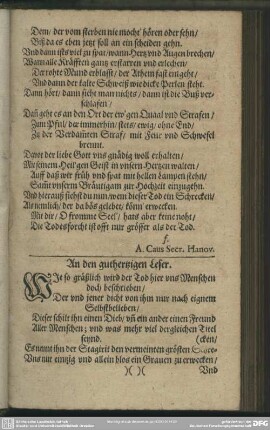 Dem/ der vom sterben nie mocht hören oder sehn/
Biß da es eben jetzt soll an ein scheiden gehn.
Und dann ists viel zu spat/ wann Hertz und Augen brechen/
Wann alle Kräfften gantz erstarren und erlechen/
Der rohte Mund erblasst/ der Athem fast eingeht/
Und dann der kalte Schweiß wie dicke Perlen steht.
Dann hört/ dann sieht man nichts/ dann ist die Buß ver-
schlafen/
Dañ geht es an den Ort der ew'gen Quaal und Strafen/
Zum Pful/ der immerhin/ stets/ ewig/ ohne End/
In der Verdamten Straf/ mit Pech und Schwefel
brennt.
Davor der liebe Gott uns gnädig woll erhalten/
Mit seinem Heil'gen Geist in unsern Hertzen walten/
Auff daß wir früh und spat mit hellen Lampen stehn/
Samt unserm Bräutigam zur Hochzeit einzugehn.
Und hierauß siehst du nun/ wem dieser Tod ein Schrecken/
Als nemlich/ der da bös gelebet/
Mit dir/ O fromme Seel'/ hats aber keine noht/
Die Todesforcht ist offt nur grösser als der Tod.
f.
A. Caus Secr. Hanov.
An den gutherzigen Leser.
WIe so gräßlich wird der Tod hier uns Menschen
doch beschrieben/
Der und jener dicht von ihm nur nach eignem
Selbstbelieben/
Dieser schilt ihn einen Dieb/ uñ ein ander einen Freund
Aller Menschen; und was mehr viel dergleichen Titel
seynd. (cken/
Es nennt ihn der Stagirit den vermeinten grösten
Uns nur einzig und allein blos ein Grauen zu erwecken/
)( )( Und